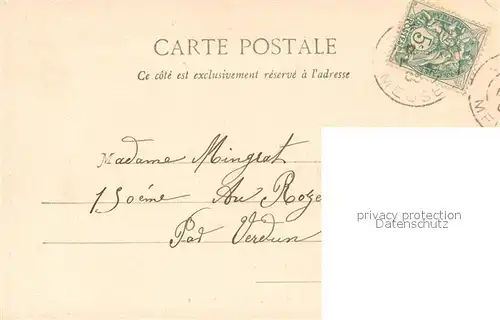 CARTE POSTALE
Ce côté est exclusivement réservé à l'adresse
MEUSE
5
Madame Mingrat
150éme Au Roze
Par Verdun
privacy protection
Datenschutz